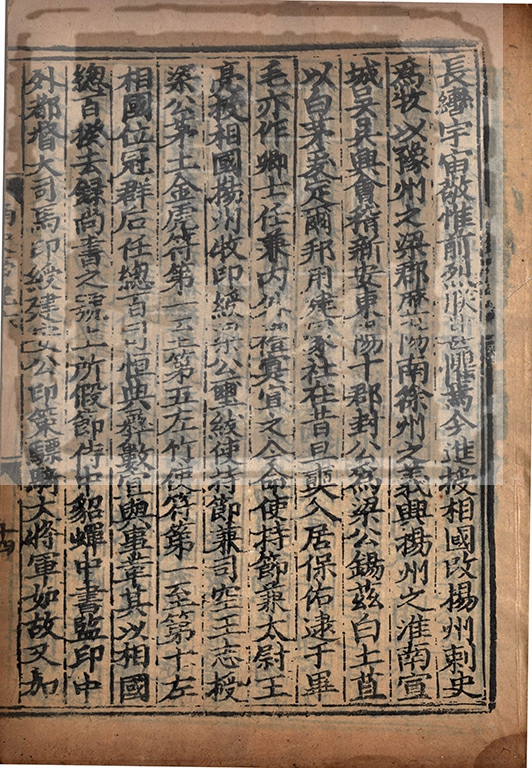 長轡宇宙敬惟前烈朕甚懼焉今進授相國改揚州刺史
爲牧以豫州之梁郡歷陽南徐州之義興揚州之淮南宣
城吳吳興會稽新安東陽十郡封公爲梁公錫茲白土苴
以白茅爰定爾邦用建冢社在昔旦奭入居保佑逮于畢
毛亦作卿士任兼內外禮實宜之今命使持節兼太尉王
亮授相國揚州牧印綬梁公璽紱使持節兼司空王志授
梁公茅土金虎符第一至第五左竹使符第一至第十左
相國位冠群后任總百司恒典彝數宜與事革其以相國
總百揆去錄尚書之號上所假節侍中貂蟬中書監印中
外都督大司馬印綬建安公印策驃騎大將軍如故又加